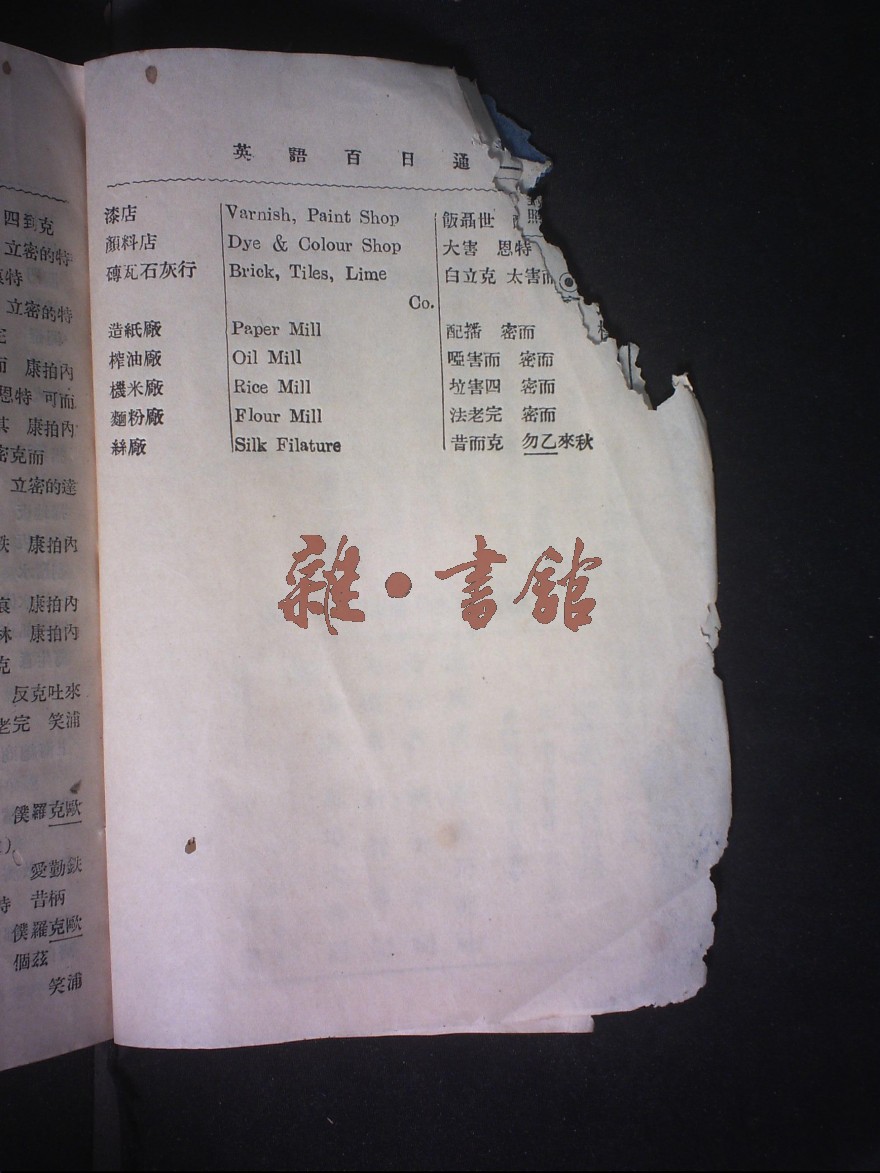 四到克
立密的特
特
立密的特
完
而 康拍內
恩特 可而
其 康拍內
密克而
立密的達
康拍內
康拍內
林 康拍內
克
反克吐來
老完 笑浦
僕羅克歐
愛勤鉄
特 昔柄
僕羅克歐
個茲
笑浦
英語百日通
漆店 Varnish, Paint Shop 飯聶世
顏料店 Dye & Colour Shop 大害 恩特
磚瓦石灰行 Brick, Tiles, Lime 白立克 太害而
Co.
造紙廠 Paper Mill 配播 密而
榨油廠 Oil Mill 啞害而 密而
機米廠 Rice Mill 垃害四 密而
麵粉廠 Flour Mill 法老完 密而
絲廠 Silk Filature 昔而克 勿乙來秋
照
雜·書館